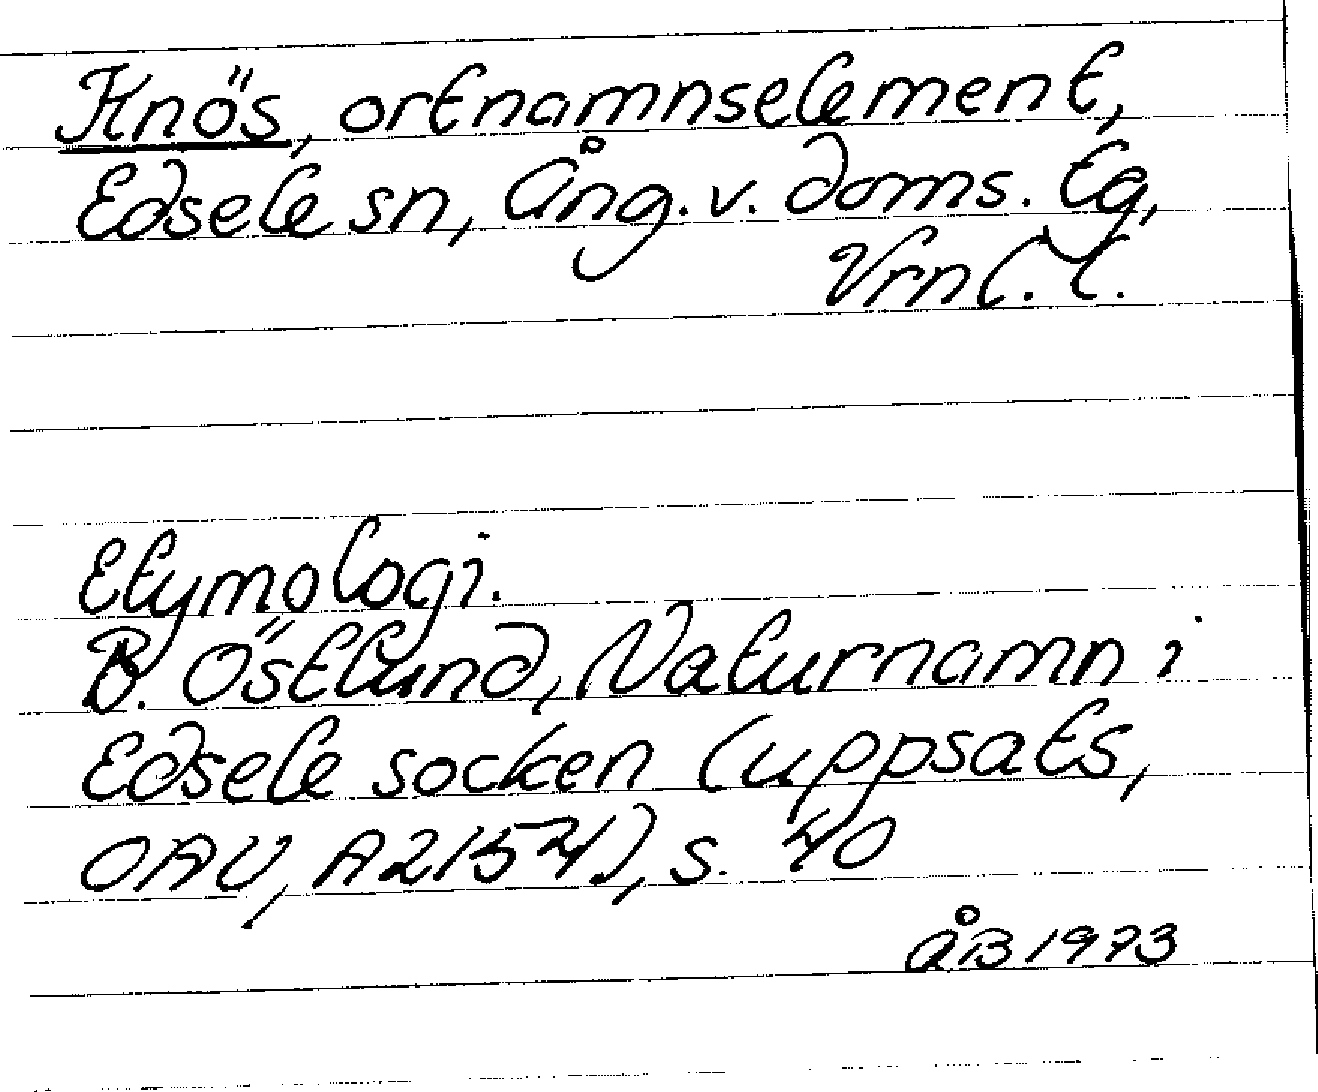 Knös, ortnamnselement,
Edsele sn, Ång. v. doms. tg,
Vrnl. l.
Etymologi.
B. Östlund, Naturnamn i
Edsele socken (uppsats,
OAU, A2154), s. 40
ÅB 1973